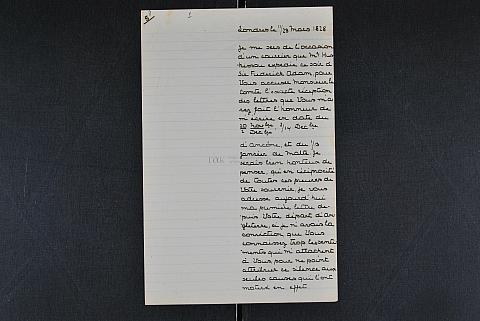 2
1
Londres le 11/23 Mars 1828
Je me sers de l'occasion
d'un courrier que Mr Hus
kisson expédie ce soir à
Sir Frederick Adam, pour
Vous accuser Monsieur le
Comte l'exacte réception
des lettres que Vous m'a
vez fait l'honneur de
m'écrire en date du
20 Novbre 2/14 Decbre
2 Decbre
d'Ancône, et du 1/13
Janvier de Malte. Je
serais bien honteux de
penser, qu'en réciprocité
de toutes ces preuves de
Votre souvenir, je vous
adresse aujourd'hui
ma première lettre de-
puis Votre départ d'An
gleterre, si je n'avais la
conviction que Vous
connaissez trop les senti
ments qui m'attachent
à Vous pour ne point
attribuer ce silence aux
seules causes qui l'ont
motivé en effet